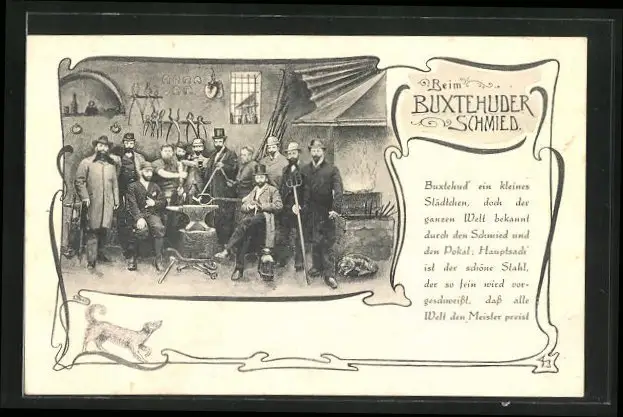 Beim
BUXTEHUDER
SCHMIED.
Buxtehud' ein kleines
Städtchen, doch der
ganzen Welt bekannt
durch den Schmied und
den Pokal; Hauptsach'
ist der schöne Stahl,
der so fein wird vor-
geschweißt, daß alle
Welt den Meister preist